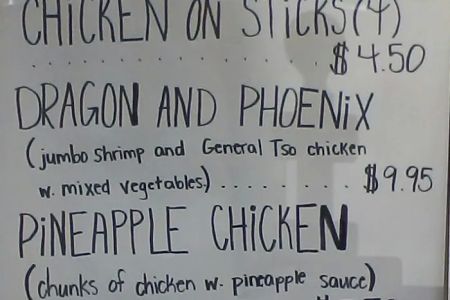 CHiCKEN ON STiCKS (4)
. . . . . . . . . . . . . . . . $4.50
DRAGON AND PHOENiX
(jumbo shrimp and General Tso chicken
w. mixed vegetables) . . . . . . . . $9.95
PiNEAPPLE CHiCKEN
(chunks of chicken w. pineapple sauce)